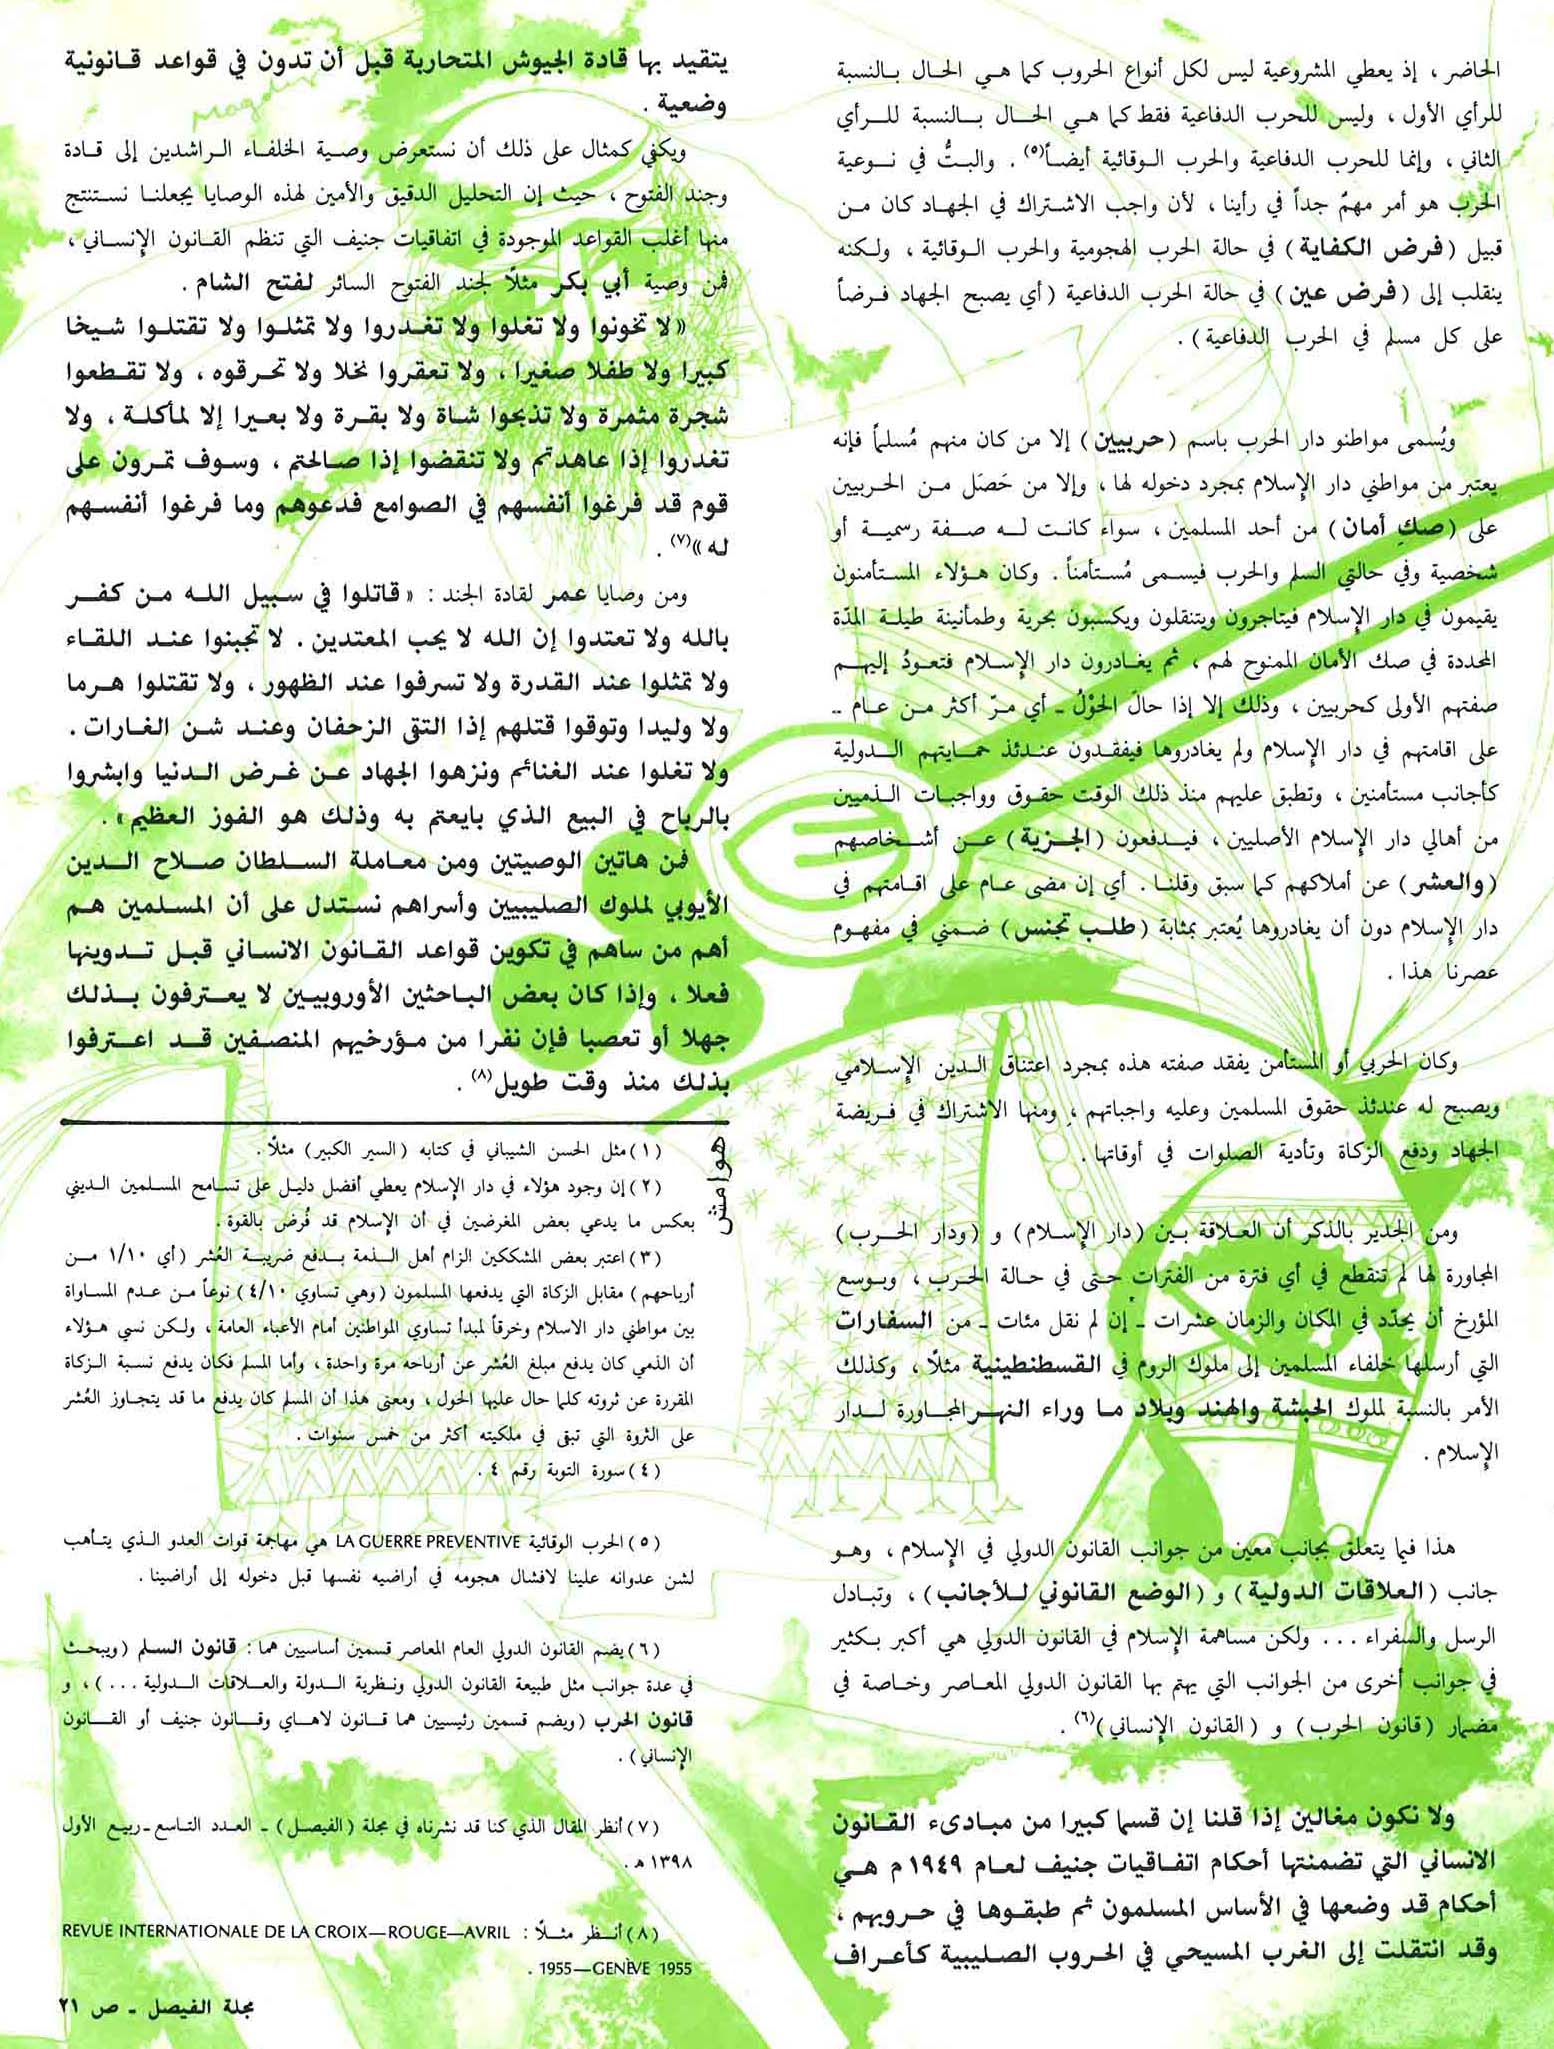 الحاضر ، إذ يعطي المشروعية ليس لكل أنواع الحروب كما هـي الحـال بـالنسبة
للرأي الأول ، وليس للحرب الدفاعية فقط كما هـي الحـال بـالنسبة للـرأي
الثاني ، وإنما للحرب الدفاعية والحرب الـوقائية أيضـاً(٥) . والبتُّ في نـوعية
الحرب هو أمر مهمّ جداً في رأينا ، لأن واجب الاشـتراك في الجهـاد كان مـن
قبيل ( فرض الكفاية ) في حالة الحرب الهجومية والحرب الـوقائية ، ولـكنه
ينقلب إلى ( فرض عين ) في حالة الحرب الدفاعية ( أي يصبح الجهاد فـرضاً
على كل مسلم في الحرب الدفاعية ) .
ويُسمى مواطنو دار الحرب باسم ( حربيين ) إلا من كان منهم مُسلماً فإنه
يعتبر من مواطني دار الإسلام بمجرد دخوله لها ، وإلا من حَصَل مـن الحـربيين
على ( صك أمان ) من أحد المسلمين ، سواء كانت لـه صـفة رسميـة أو
شخصية وفي حالتي السلم والحرب فيسمى مُستأمناً . وكان هـؤلاء المستأمنون
يقيمون في دار الإسلام فيتاجرون ويتنقلون ويكسبون بحرية وطمأنينة طيلـة المدّة
المحددة في صك الأمان الممنوح لهم ، ثم يغـادرون دار الإسـلام فتعـودُ إليهـم
صفتهم الأولى كحربيين ، وذلك إلا إذا حالَ الحَوْلُ ـ أي مـرّ أكثر مـن عـام ـ
على اقامتهم في دار الإسلام ولم يغادروها فيفقـدون عنـدئذ حمـايتهم الـدولية
كأجانب مستأمنين ، وتطبق عليهم منذ ذلك الوقت حقـوق وواجبـات الـذميين
من أهالي دار الإسلام الأصليين ، فيـدفعون ( الجـزية ) عـن أشـخاصهم
( والعشر ) عن أملاكهم كما سبق وقلنـا . أي إن مضى عـام على اقـامتهم في
دار الإسلام دون أن يغادروها يُعتبر بمثابة ( طلـب تجنس ) ضـمني في مفهـوم
عصرنا هذا .
وكان الحربي أو المستأمن يفقد صفته هذه بمجرد اعتناق الـدين الإسـلامي
ويصبح له عندئذ حقوق المسلمين وعليه واجباتهم ، ومنها الاشتراك في فـريضة
الجهاد ودفع الزكاة وتأدية الصلوات في أوقاتها .
ومن الجدير بالذكر أن العـلاقة بـين ( دار الإسـلام ) و ( ودار الحـرب )
المجاورة لها لم تنقطع في أي فترة من الفترات حتى في حـالة الحـرب ، وبـوسع
المؤرخ أن يحدّد في المكان والزمان عشرات ـ إن لم نقل مئات ـ من السفارات
التي أرسلها خلفاء المسلمين إلى ملوك الروم في القسطنطينية مثلًا ، وكذلك
الأمر بالنسبة لملوك الحبشة والهند وبلاد مـا وراء النهـر المجـاورة لـدار
الإسلام .
هذا فيما يتعلق بجانب معين من جوانب القانون الدولي في الإسلام ، وهـو
جانب ( العلاقات الدولية ) و ( الوضع القانوني للأجانب ) ، وتبـادل
الرسل والسفراء ... ولكن مساهمة الإسلام في القانون الدولي هي أكبر بـكثير
في جوانب أخرى من الجوانب التي يهتم بها القانون الدولي المعـاصر وخـاصة في
مضمار ( قانون الحرب ) و ( القانون الإنساني )(٦) .
ولا نكون مغالين إذا قلنا إن قسما كبيرا من مبـادىء القـانون
الانساني التي تضمنتها أحكام اتفـاقيات جنيف لعـام ١٩٤٩ م هـي
أحكام قد وضعها في الأساس المسلمون ثم طبقـوها في حـروبهم ،
وقد انتقلت إلى الغرب المسيحي في الحـروب الصـليبية كـأعـراف
يتقيد بها قادة الجيوش المتحاربة قبل أن تدون في قواعد قـانونية
وضعية .
ويكفي كمثال على ذلك أن نستعرض وصية الخلفـاء الـراشدين إلى قـادة
وجند الفتوح ، حيث إن التحليل الدقيق والأمين لهذه الوصايا يجعلنـا نسـتنتج
منها أغلب القواعد الموجودة في اتفاقيات جنيف التي تنظم القـانون الإنسـاني ،
فمن وصية أبي بكر مثلًا لجند الفتوح السائر لفتح الشام .
« لا تخونوا ولا تغلوا ولا تغـدروا ولا تمثلـوا ولا تقتلـوا شـيخا
كبيرا ولا طفلا صغيرا ، ولا تعقروا نخلا ولا تحـرقوه ، ولا تقـطعوا
شجرة مثمرة ولا تذبحوا شـاة ولا بقـرة ولا بعـيرا إلا لمأكلـة ، ولا
تغدروا إذا عاهدتم ولا تنقضوا إذا صـالحتم ، وسـوف تمـرون على
قوم قد فرغوا أنفسهم في الصوامع فدعوهم وما فرغوا أنفسـهم
له »(٧) .
ومن وصايا عمر لقادة الجند : « قاتلوا في سبيل اللـه مـن كفـر
بالله ولا تعتدوا إن الله لا يحب المعتدين . لا تجبنوا عنـد اللقـاء
ولا تمثلوا عند القدرة ولا تسرفوا عند الظهور ، ولا تقتلوا هـرما
ولا وليدا وتوقوا قتلهم إذا التقى الزحفان وعنـد شـن الغـارات .
ولا تغلوا عند الغنائم ونزهوا الجهاد عـن غـرض الـدنيا وابشروا
بالرباح في البيع الذي بايعتم به وذلك هو الفوز العظيم » .
فمن هاتين الوصيتين ومن معـاملة السـلطان صـلاح الـدين
الأيوبي لملوك الصليبيين وأسراهم نسـتدل على أن المسـلمين هـم
أهم من ساهم في تكوين قواعد القـانون الانساني قبـل تـدوينها
فعلا ، وإذا كان بعض البـاحثين الأوروبيـين لا يعـترفون بـذلك
جهلا أو تعصبا فإن نفرا من مـؤرخيهم المنصـفين قـد اعـترفوا
بذلك منذ وقت طويل(٨) .
هوامش
( ١ ) مثل الحسن الشيباني في كتابه ( السير الكبير ) مثلًا .
( ٢ ) إن وجود هؤلاء في دار الإسلام يعطي أفضل دليـل على تسـامح المسـلمين الـديني
بعكس ما يدعي بعض المغرضين في أن الإسلام قد فُرض بالقوة .
( ٣ ) اعتبر بعض المشككين الزام أهل الـذمة بـدفع ضريبـة العُشر ( أي ١/١٠ مـن
أرباحهم ) مقابل الزكاة التي يدفعها المسلمون ( وهي تساوي ٤/١٠ ) نوعاً مـن عـدم المسـاواة
بين مواطني دار الاسلام وخرقاً لمبدأ تساوي المواطنين أمام الأعباء العامة ، ولـكن نسي هـؤلاء
أن الذمي كان يدفع مبلغ العُشر عن أرباحه مرة واحدة ، وأما المسلم فكان يدفع نسـبة الـزكاة
المقررة عن ثروته كلما حال عليها الحول ، ومعنى هذا أن المسلم كان يدفع ما قد يتجـاوز العُشر
على الثروة التي تبقى في ملكيته أكثر من خمس سنوات .
( ٤ ) سورة التوبة رقم ٤ .
( ٥ ) الحرب الوقائية LA GUERRE PREVENTIVE هي مهاجمة قوات العدو الـذي يتـأهب
لشن عدوانه علينا لافشال هجومه في أراضيه نفسها قبل دخوله إلى أراضينا .
( ٦ ) يضم القانون الدولي العام المعاصر قسمين أساسيين هما : قانون السلم ( ويبحـث
في عدة جوانب مثل طبيعة القانون الدولي ونظرية الـدولة والعـلاقات الـدولية ... ) ، و
قانون الحرب ( ويضم قسمين رئيسيين هما قـانون لاهـاي وقـانون جنيف أو القـانون
الإنساني ) .
( ٧ ) أنظر المقال الذي كنا قد نشرناه في مجلة ( الفيصـل ) ـ العـدد التـاسع ـ ربيـع الأول
١٣٩٨ هـ .
( ٨ ) أنـظر مثـلًا : REVUE INTERNATIONALE DE LA CROIX—ROUGE—AVRIL
1955—GENÈVE 1955 .
مجلة الفيصل ـ ص ٢١